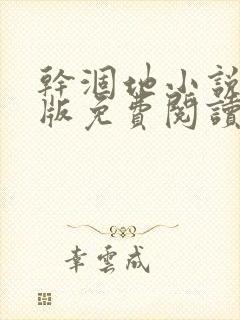 幹涸地小說
版免費閱讀
幸雲成